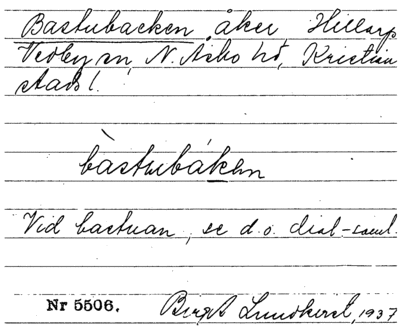 Bastubacken, åker, Hillarp
Vedby sn, N. Åsbo hd, Kristian
stads l.
bàstubáken
Vid bastuan, se d.o. dial-saml.
Nr 5506. Birgit Lundkvist, 1937